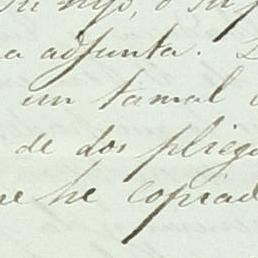 su hijo, o su p
a adjunta.
un tamal
de dos plieg
ue he copiad